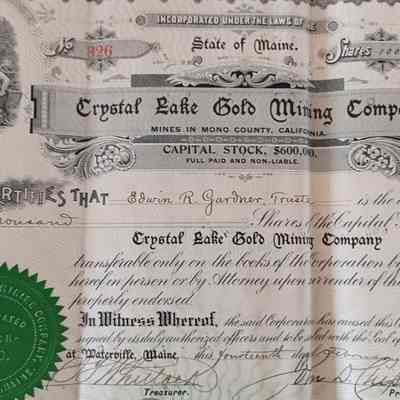 INCORPORATED UNDER THE LAWS OF THE
No 326
State of Maine.
Shares 100
Crystal Lake Gold Mining Compa
MINES IN MONO COUNTY, CALIFORNIA.
CAPITAL STOCK, $600,00
FULL PAID AND NON-LIABLE.
ERTIFIES THAT Edwin R. Gardner, Trustee is the
housand Shares of the Capital
Crystal Lake Gold Mining Company
transferable only on the books of the corporation by
hereof in person or by Attorney upon surrender of th
properly endorsed.
In Witness Whereof, the said Corporation has caused this C
signed by its duly authorized officers and to be sealed with the Seal of
at Waterville, Maine. this fourteenth day
Treasurer.
Pr